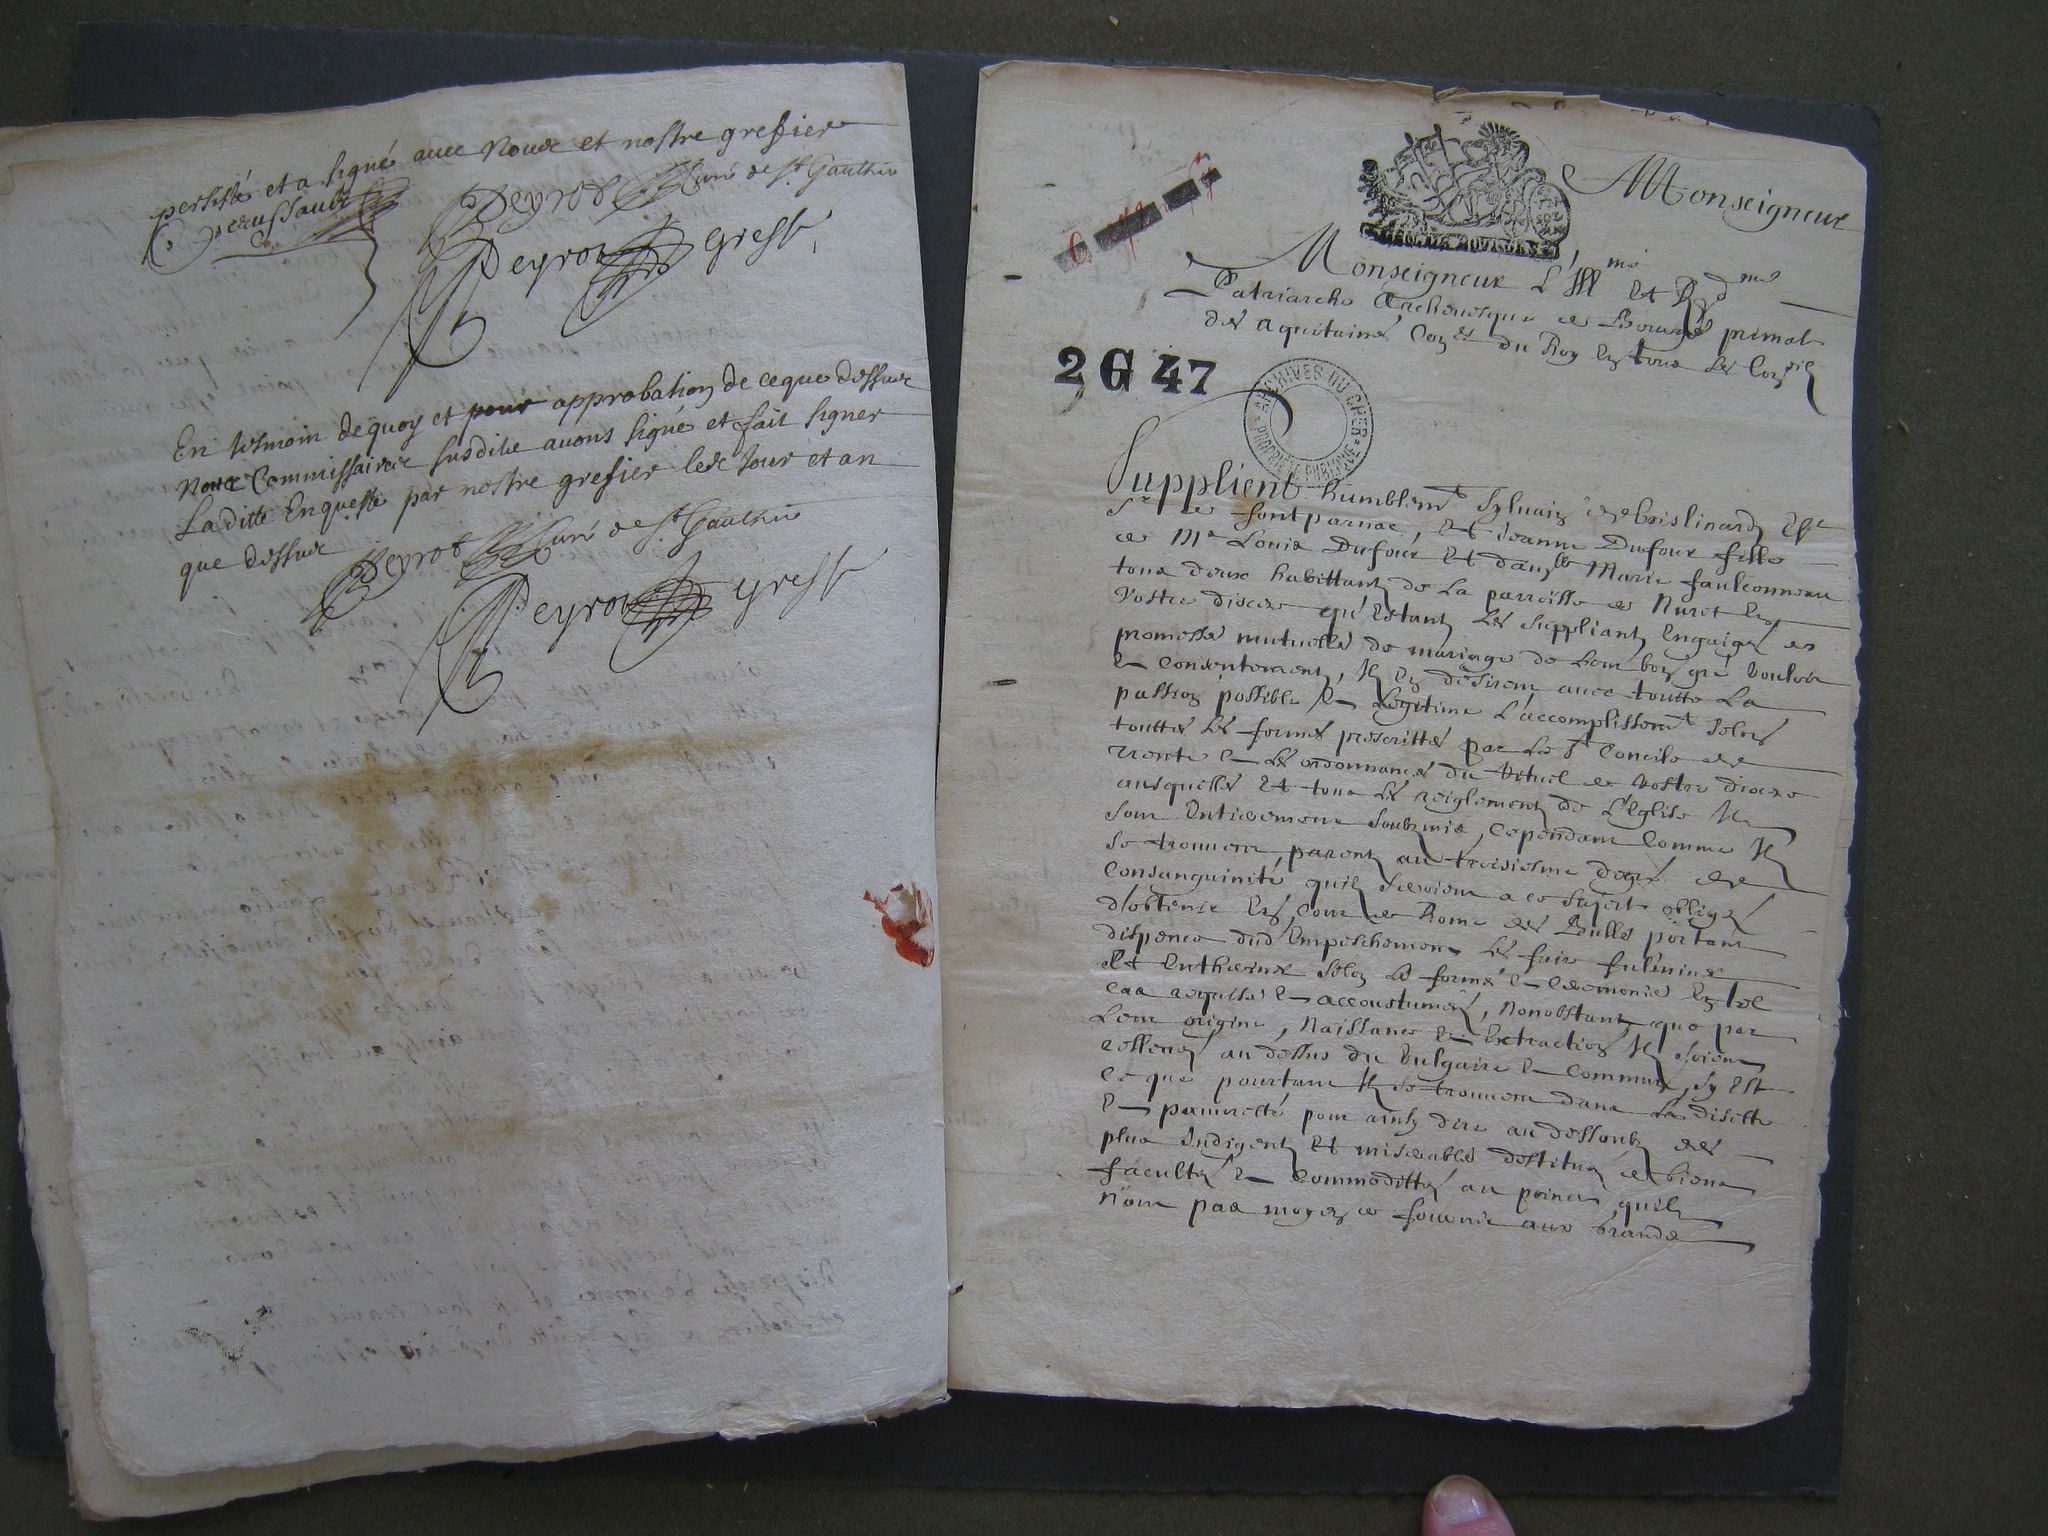 persisté et a signé avec Nous et nostre grefier
Peyrot Curé de St Gaultier
Peyrot greff
En tesmoin de quoy et pour approbation de ce que dessus
Nous Commissaire susdite avons signé et fait signer
La ditte Enqueste par nostre grefier les Jour et an
que dessus
Peyrot Curé de St Gaultier
Peyrot greff
Monseigneur
Monseigneur L'Illme Et Rdme
Patriarche Archevesque de Bourges primat
des aquitaines Coner du Roy En tous Ses Conseils
2 G 47
ARCHIVES DU CHER
PROPRIÉTÉ PUBLIQUE
Supplient humblemt Sylvain de boislinard Escr
Sr de fontparnac, Et Jeanne Dufour fille
de Me Louis Dufour Et damlle Marie faulconneau
tous deux habittant de La parroisse de Nuret En
Vostre diocese qu'Estant Les Suppliant Engaigés es
promesses mutuelles de mariage de Leur bon gré Vouloir
& Consentement, Ils En desirent avec toutte La
passion possible & Legitime L'accomplissemt Selon
touttes Les formes prescrittes par Le St Concile de
Trente & Les ordonnances du Rituel de Vostre diocese
ausquelles Et tous Les reiglement de L'Eglise Ils
sont Entierement Soubmis, Cependant Comme Ils
se trouvent parent au troisiesme degré de
Consanguinité quils Seroient a ce Sujet obligés
d'obtenir En Cour de Rome des Bulles portant
dispence dud Empeschement Les faire fulminer
Et Entheriner Selon Les formes & Ceremonies En tel
Cas requises & accoustumées, Nonobstant que par
Leur origine, Naissance & Extraction Ils soient
Eslevés au dessus du Vulgaire & Commun, Sy Est
Ce que pourtant Ils se trouvent dans La disette
& pauvretté pour ainsy dire au dessoubs des
plus Indigents Et miserables destitués de biens
facultés & Commodittés au point quils
Nont pas moyen de fournir aux grandes